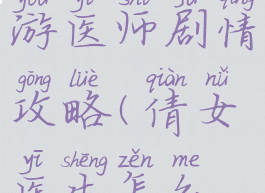 yóu yī shī jù qíng
游医师剧情
gōng lüè qiàn nǚ
攻略(倩女
yī shēng zěn me
医生怎么